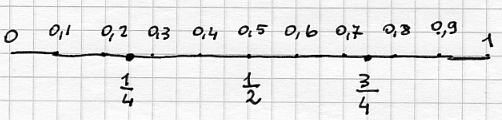 0 0,1 0,2 0,3 0,4 0,5 0,6 0,7 0,8 0,9 1
1/4 1/2 3/4